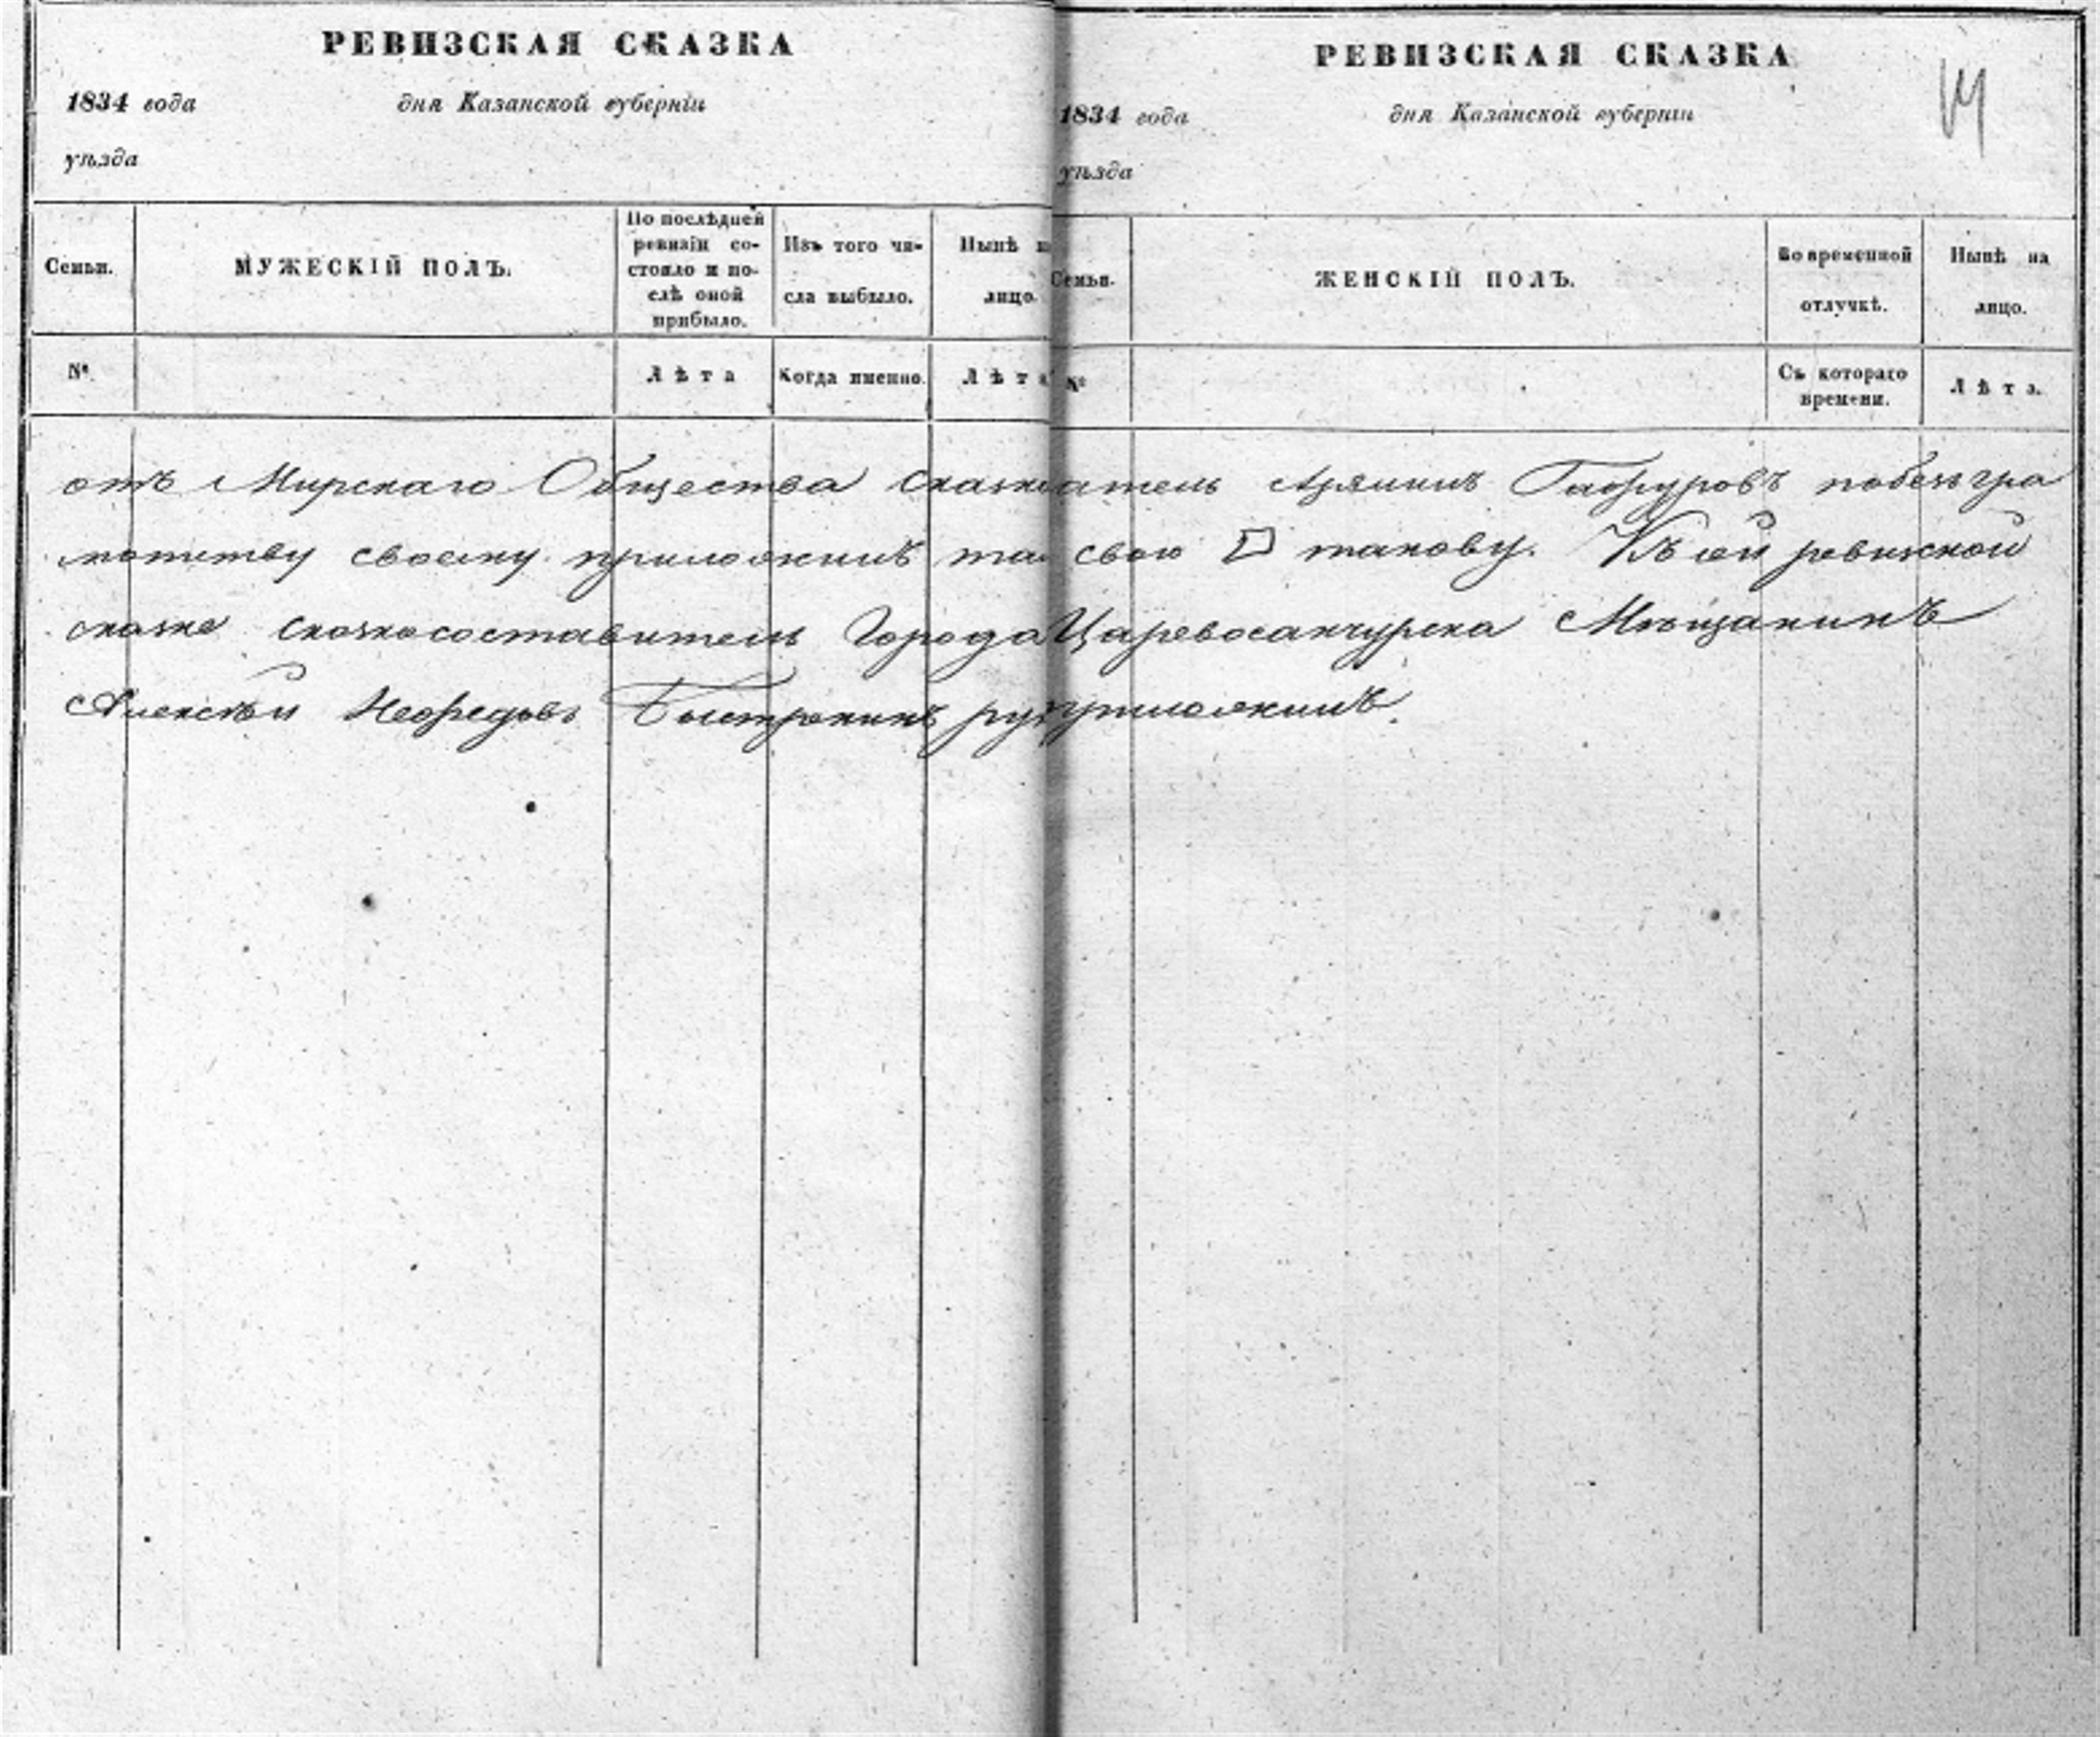 РЕВИЗСКАЯ СКАЗКА
1834 года дня Казанской губерніи
уѣзда
Семьи.
МУЖЕСКІЙ ПОЛЪ.
По послѣдней
ревизіи со-
стояло и по-
слѣ оной
прибыло.
Изъ того чи-
сла выбыло.
Нынѣ на
лицо.
№
Лѣта
Когда именно.
Лѣта
РЕВИЗСКАЯ СКАЗКА
1834 года дня Казанской губерніи
уѣзда
Семьи.
ЖЕНСКІЙ ПОЛЪ.
Во временной
отлучкѣ.
Нынѣ на
лицо.
№
Съ котораго
времени.
Лѣта.
отъ Мирскаго Общества сказкатель Гафуровъ побезгра
мотству своему приложилъ свою тамову. Къ сей ревизской
сказке сказкосоставитель Города Царевосанчурска Мѣщанинъ
Алексѣй Нефедовъ Быстронинъ приложилъ.